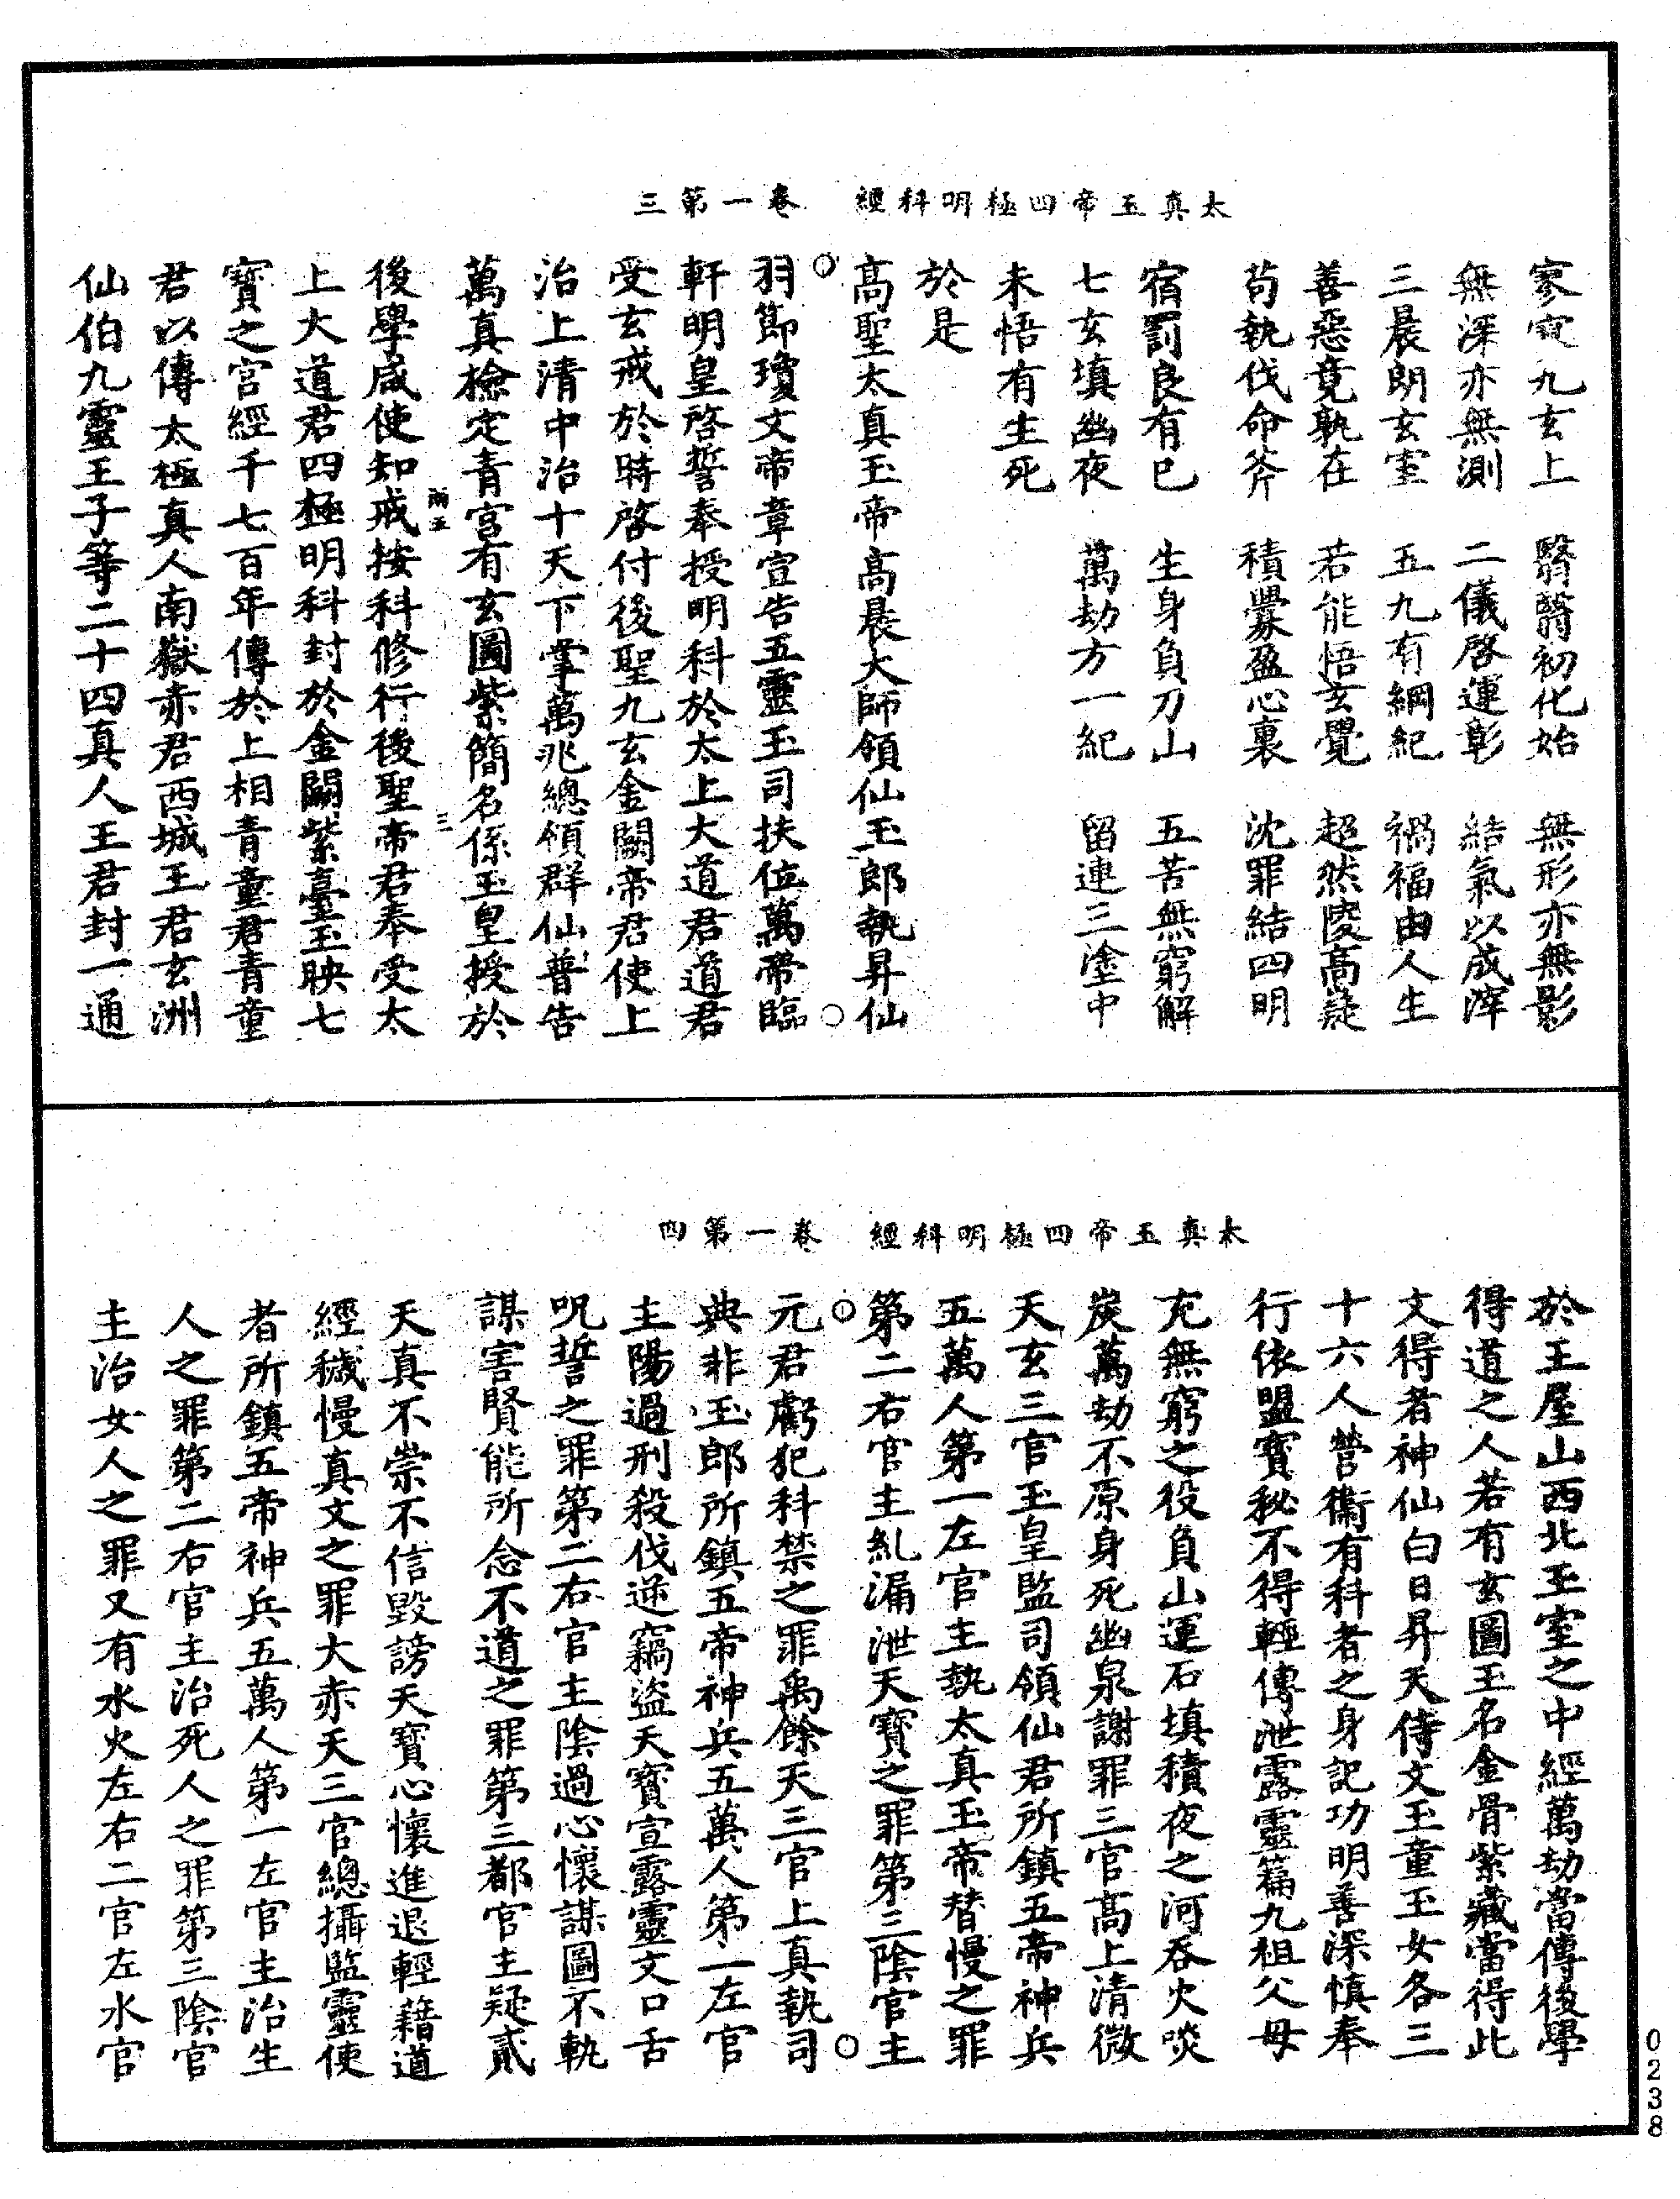 太真玉帝四極明科經　卷一第三
寥寥九玄上　翳翳初化始　無形亦無影
無深亦無測　二儀啓運彰　結氣以成滓
三晨朗玄室　五九有綱紀　禍福由人生
善惡竟孰在　若能悟玄覺　超然陵高疑
苟執伐命斧　積釁盈心裏　沈罪結四明
宿罰良有已　生身負刀山　五苦無窮解
七玄填幽夜　萬劫方一紀　留連三塗中
未悟有生死
於是
高聖太真玉帝高晨大師領仙玉郎執昇仙
羽節瓊文帝章宣告五靈玉司扶位萬帝臨
軒明皇啓誓奉授明科於太上大道君道君
受玄戒於時啓付後聖九玄金闕帝君使上
治上清中治十天下掌萬兆總領群仙普告
萬真檢定青宮有玄圖紫簡名係玉皇授於
雨五　三
後學咸使知戒按科修行後聖帝君奉受太
上大道君四極明科封於金闕紫臺玉映七
寶之宮經千七百年傳於上相青童君青童
君以傳太極真人南嶽赤君西城王君玄洲
仙伯九靈王子等二十四真人王君封一通
太真玉帝四極明科經　卷一第四
於王屋山西北玉室之中經萬劫當傳後學
得道之人若有玄圖玉名金骨紫藏當得此
文得者神仙白日昇天侍文玉童玉女各三
十六人營衞有科者之身記功明善深慎奉
行依盟寳秘不得輕傳泄露靈篇九祖父母
充無窮之役負山運石填積夜之河吞火啖
炭萬劫不原身死幽泉謝罪三官高上清微
天玄三官玉皇監司領仙君所鎮五帝神兵
五萬人第一左官主執太真玉帝替慢之罪
第二右官主糺漏泄天寳之罪第三陰官主
元君虧犯科禁之罪禹餘天三官上真執司
典非玉郎所鎮五帝神兵五萬人第一左官
主陽過刑殺伐逆竊盜天寳宣露靈文口舌
呪誓之罪第二右官主陰過心懷謀圖不軌
謀害賢能所念不道之罪第三都官主疑貳
天真不崇不信毀謗天寳心懷進退輕藉道
經穢慢真文之罪大赤天三官總攝監靈使
者所鎮五帝神兵五萬人第一左官主治生
人之罪第二右官主治死人之罪第三陰官
主治女人之罪又有水火左右二官左水官
0238